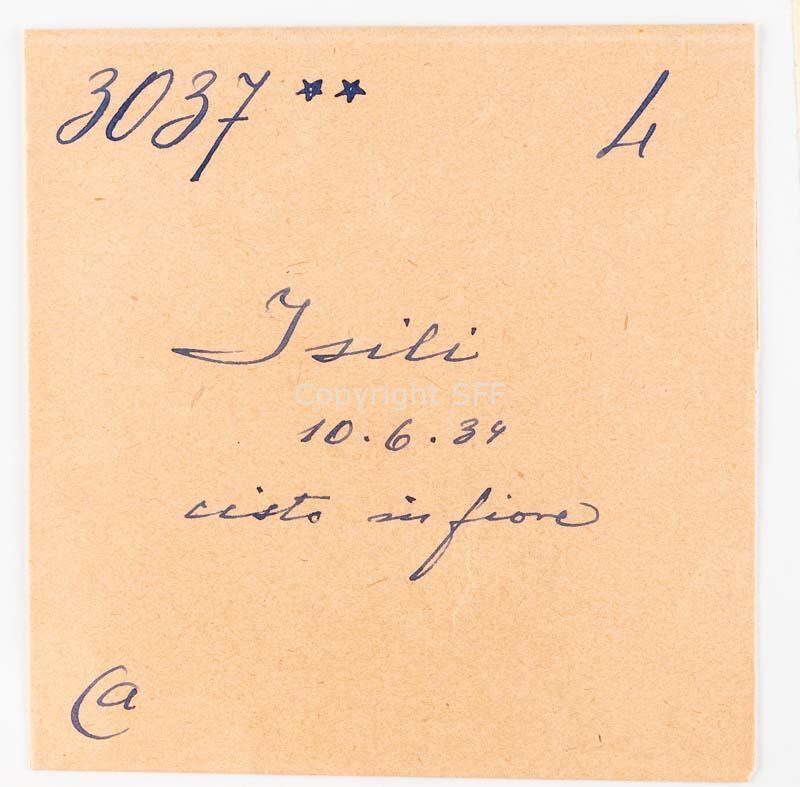 3037 ** 4
Isili
Copyright SFF
10.6.34
cisto in fiore
Ca